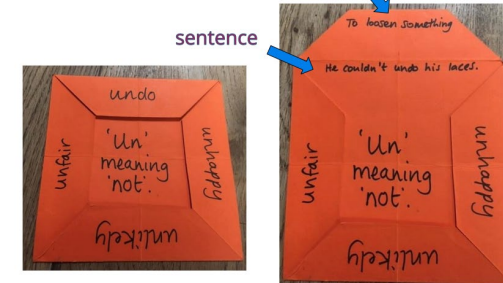 sentence
undo
unfair
'Un'
meaning
'not'.
unhappy
unlikely
To loosen something
He couldn't undo his laces.
unfair
'Un'
meaning
'not'.
unhappy
unlikely